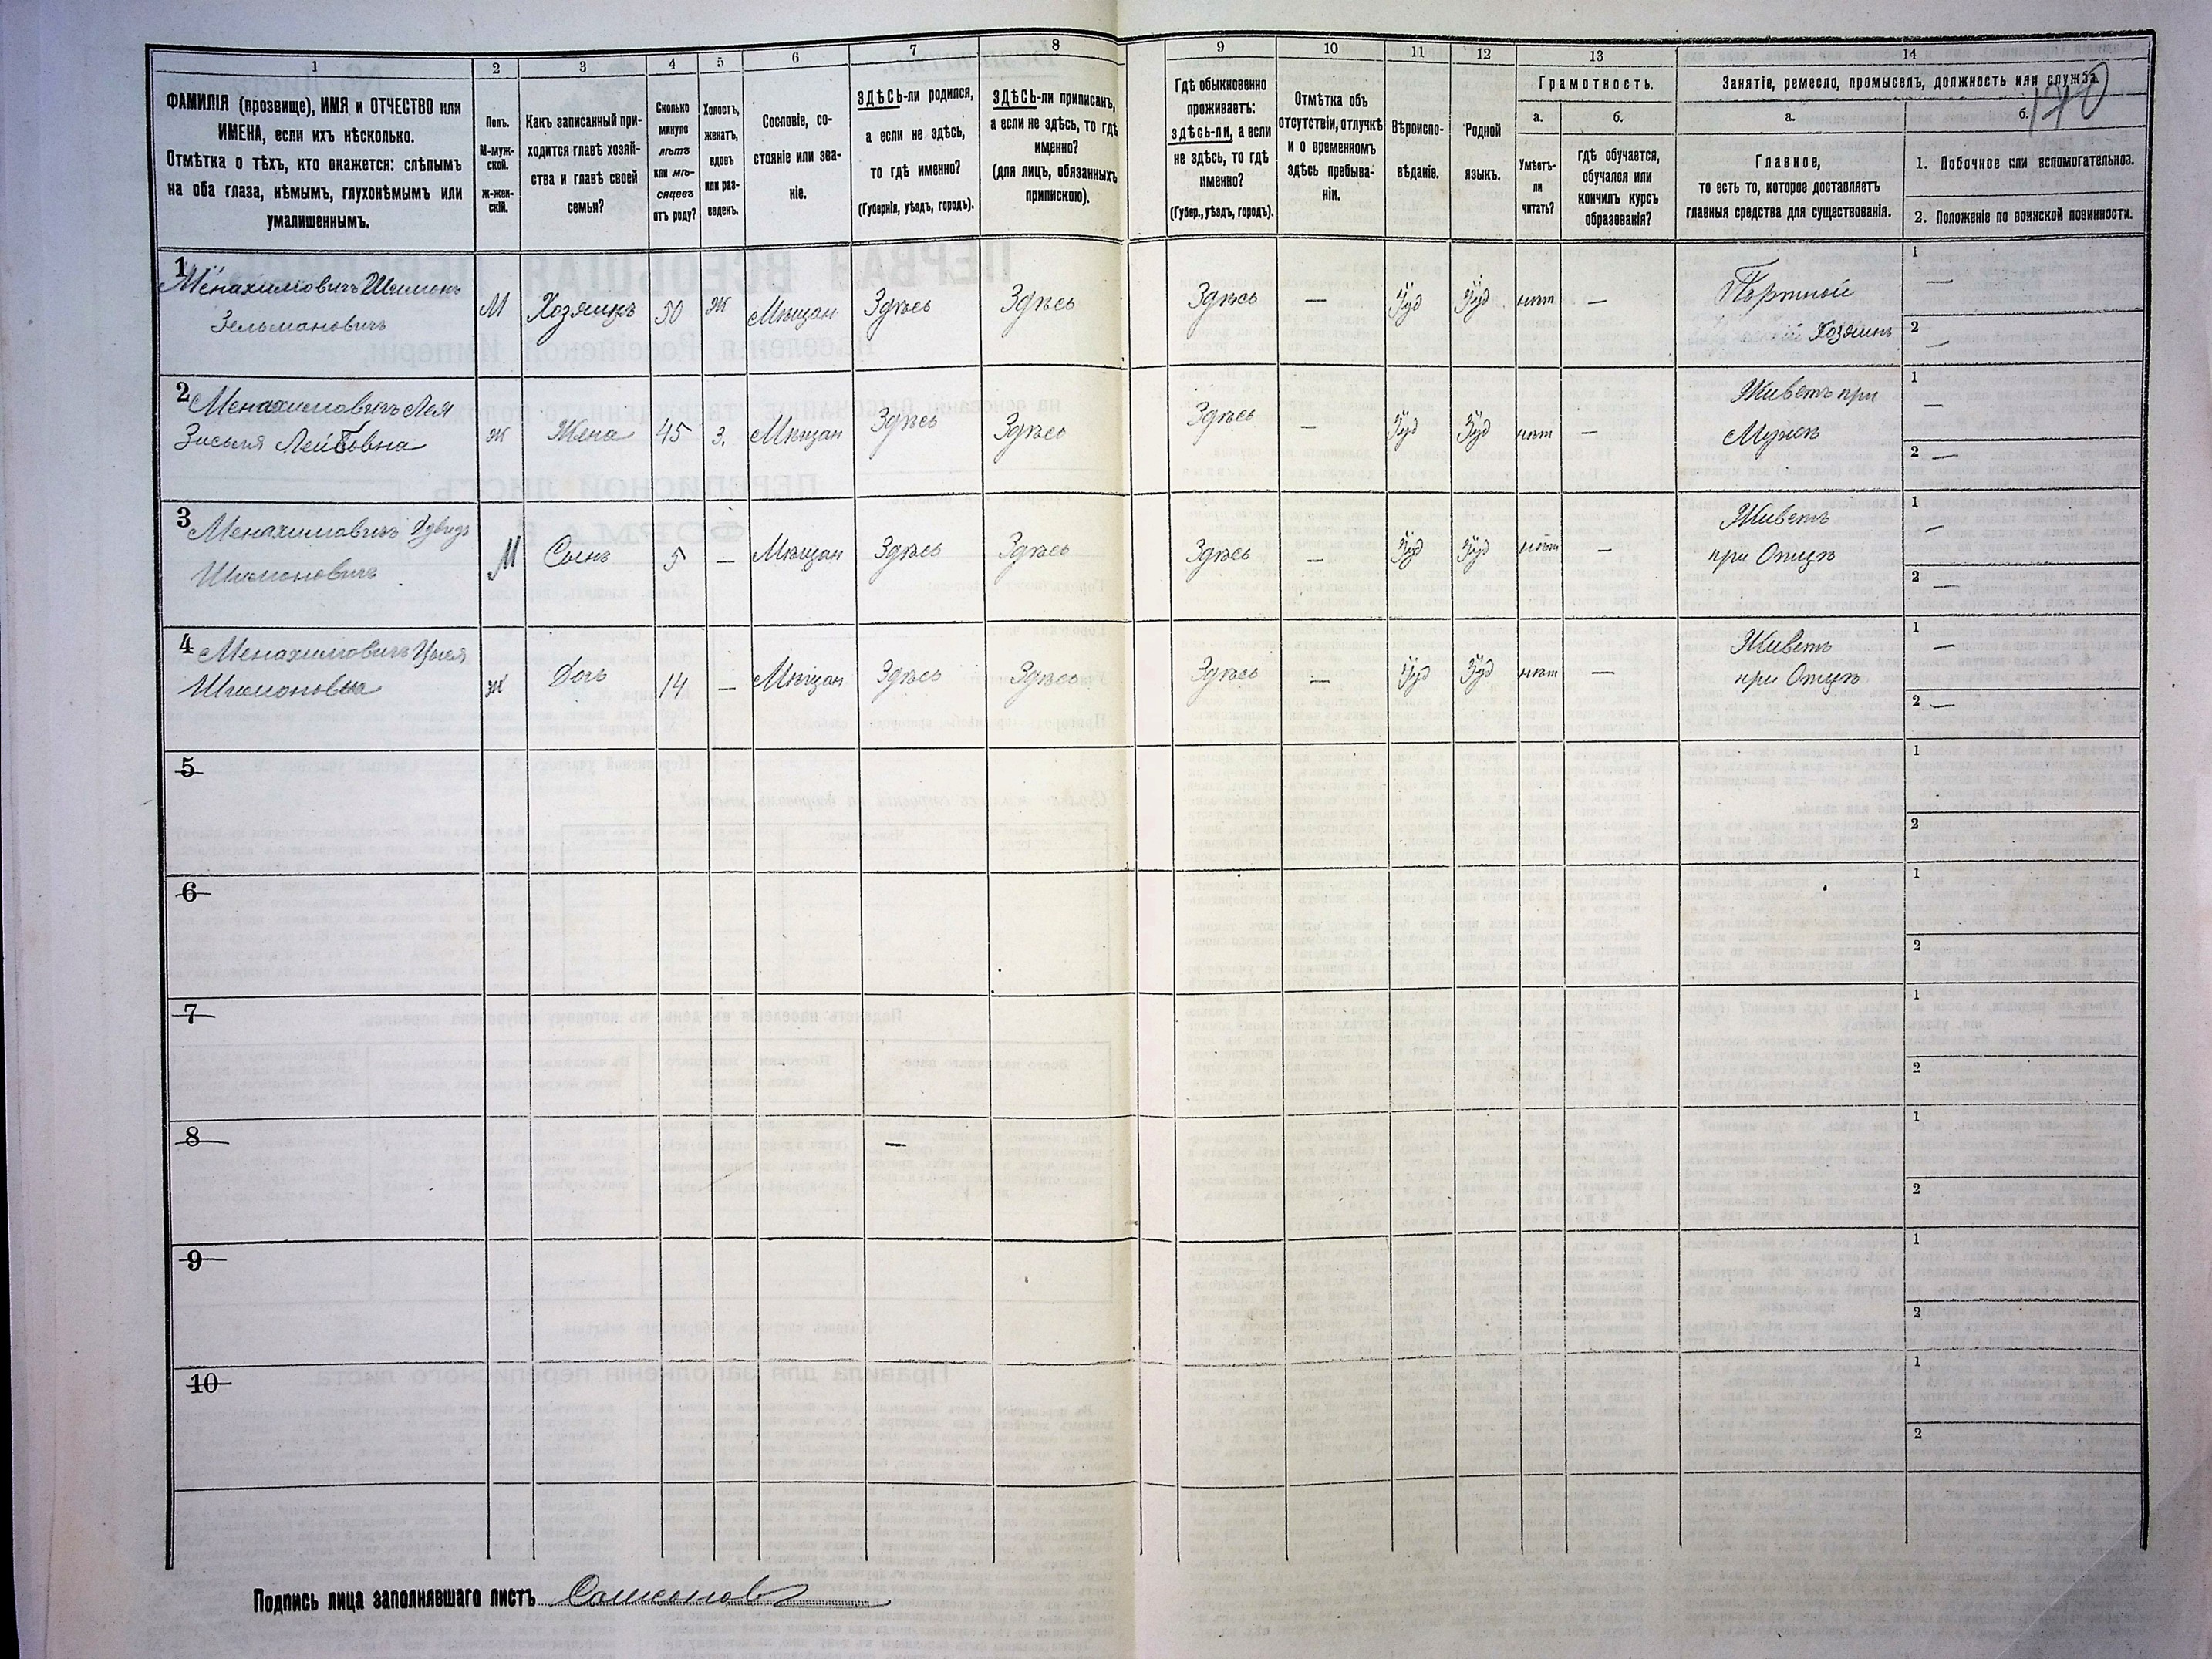 1 2 3 4 5 6 7 8 9 10 11 12 13 14
ФАМИЛІЯ (прозвище), ИМЯ и ОТЧЕСТВО или
ИМЕНА, если ихъ нѣсколько.
Отмѣтка о тѣхъ, кто окажется: слѣпымъ
на оба глаза, нѣмымъ, глухонѣмымъ или
умалишеннымъ.
Полъ.
М-муж-
ской.
Ж-жен-
скій.
Какъ записанный при-
ходится главѣ хозяй-
ства и главѣ своей
семьи?
Сколько
минуло
лѣтъ
или мѣ-
сяцевъ
отъ роду?
Холостъ,
женатъ,
вдовъ
или раз-
веденъ.
Сословіе, со-
стояніе или зва-
ніе.
ЗДѢСЬ-ли родился,
а если не здѣсь,
то гдѣ именно?
(Губернія, уѣздъ, городъ).
ЗДѢСЬ-ли приписанъ,
а если не здѣсь, то гдѣ
именно?
(для лицъ, обязанныхъ
припискою).
Гдѣ обыкновенно
проживаетъ:
здѣсь-ли, а если
не здѣсь, то гдѣ
именно?
(Губер., уѣздъ, городъ).
Отмѣтка объ
отсутствіи, отлучкѣ
и о временномъ
здѣсь пребыва-
ніи.
Вѣроиспо-
вѣданіе.
Родной
языкъ.
Грамотность.
а.
Умѣетъ-
ли
читать?
б.
гдѣ обучается,
обучался или
кончилъ курсъ
образованія?
Занятіе, ремесло, промыселъ, должность или служба.
170
а.
Главное,
то есть то, которое доставляетъ
главныя средства для существованія.
б.
1. Побочное или вспомогательное.
2. Положеніе по воинской повинности.
1 Менахимовичъ Шимонъ
Зельмановичъ
М Хозяинъ 50 Ж Мѣщан Здѣсь Здѣсь Здѣсь — Іуд Іуд нѣт —
Портной
Хозяинъ
1 —
2 —
2 Менахимовичъ Лея
Зисьля Лейбовна
Ж Жена 45 З. Мѣщан Здѣсь Здѣсь Здѣсь — Іуд Іуд нѣт —
Живетъ при
Мужѣ
1 —
2 —
3 Менахимовичъ
Шимоновичъ
М Сынъ 5 — Мѣщан Здѣсь Здѣсь Здѣсь — Іуд Іуд нѣт —
Живетъ
при Отцѣ
1 —
2 —
4 Менахимовичъ
Шимоновна
Ж Дочь 14 — Мѣщан Здѣсь Здѣсь Здѣсь — Іуд Іуд нѣт —
Живетъ
при Отцѣ
1 —
2 —
5 1
2
6 1
2
7 1
2
8 — 1
2
9 1
2
10 1
2
Подпись лица заполнявшаго листъ